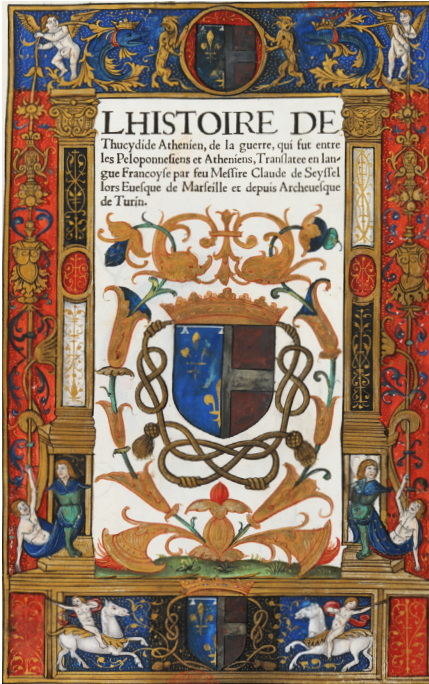 LHISTOIRE DE
Thucydide Athenien, de la guerre, qui fut entre
les Peloponnesiens et Atheniens, Translatee en lan-
gue Francoyse par feu Messire Claude de Seyssel
lors Evesque de Marseille et depuis Archevesque
de Turin.